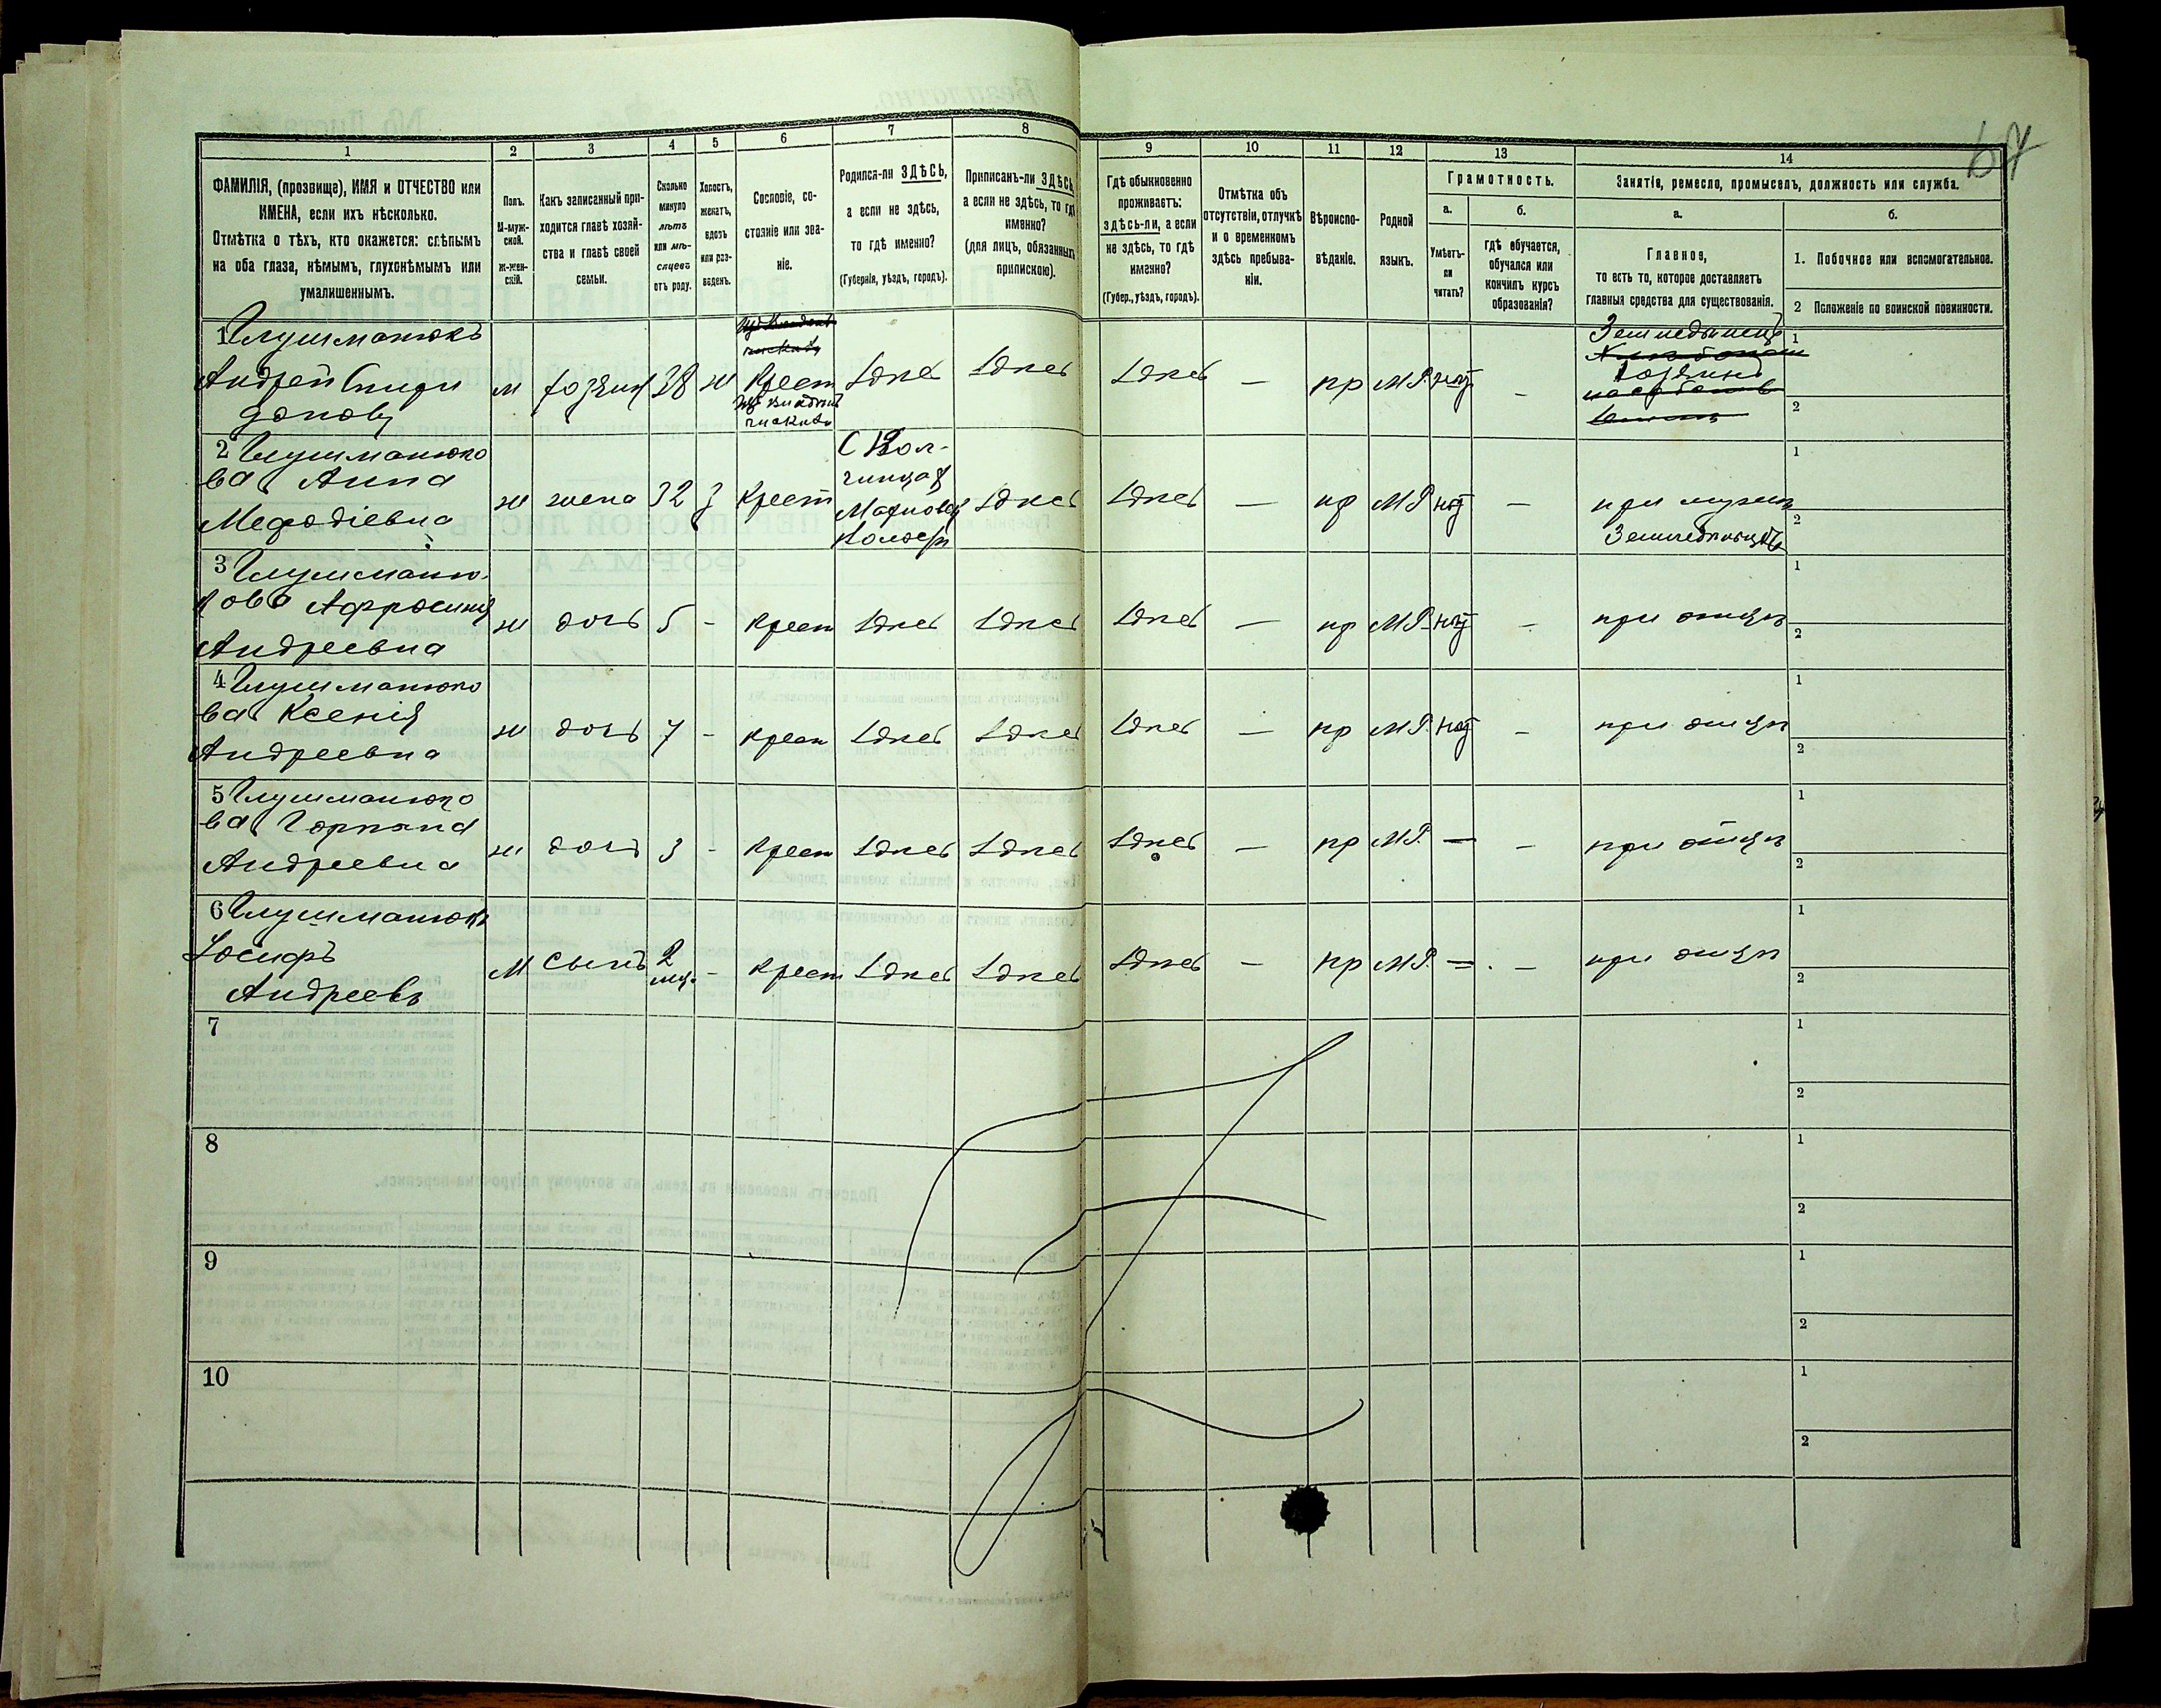 67
1 2 3 4 5 6 7 8 9 10 11 12 13 14
ФАМИЛІЯ, (прозвище), ИМЯ и ОТЧЕСТВО или
ИМЕНА, если ихъ нѣсколько.
Отмѣтка о тѣхъ, кто окажется: слѣпымъ
на оба глаза, нѣмымъ, глухонѣмымъ или
умалишеннымъ.
Полъ.
М-муж-
ской.
ж-жен-
скій.
Какъ записанный при-
ходится главѣ хозяй-
ства и главѣ своей
семьи.
Сколько
минуло
лѣтъ
или мѣ-
сяцевъ
отъ роду.
Холостъ,
женатъ,
вдовъ
или раз-
веденъ.
Сословіе, со-
стояніе или зва-
ніе.
Родился-ли ЗДѢСЬ,
а если не здѣсь,
то гдѣ именно?
(Губернія, уѣздъ, городъ).
Приписанъ-ли ЗДѢСЬ,
а если не здѣсь, то гдѣ
именно?
(для лицъ, обязанныхъ
припискою).
Гдѣ обыкновенно
проживаетъ:
здѣсь-ли, а если
не здѣсь, то гдѣ
именно?
(Губер., уѣздъ, городъ).
Отмѣтка объ
отсутствіи, отлучкѣ
и о временномъ
здѣсь пребыва-
ніи.
Вѣроиспо-
вѣданіе.
Родной
языкъ.
Грамотность.
а.
Умѣетъ-
ли
читать?
б.
гдѣ обучается,
обучался или
кончилъ курсъ
образованія?
Занятіе, ремесло, промыселъ, должность или служба.
а.
Главное,
то есть то, которое доставляетъ
главныя средства для существованія.
б.
1. Побочное или вспомогательное.
2 Положеніе по воинской повинности.
1 Глушманюкъ
Андрей Спири
доновъ
м хозяин 38 ж Крест здесь здесь здесь — пр М.Р. нѣт —
Земледѣлецъ
хозяинъ
1
2
2 Глушманюко
ва Анна
Мефодіевна
ж жена 32 з Крест
здесь здесь — пр М.Р. нѣт —
при мужѣ
1
2
3 Глушманю-
кова Афросинія
Андреевна
ж дочь 5 - крест здесь здесь здесь — пр М.Р. нѣт — при отцѣ
1
2
4 Глушманюко
ва Ксенія
Андреевна
ж дочь 7 - крест здесь здесь здесь — пр М.Р. нѣт — при отцѣ
1
2
5 Глушманюко
ва Горпина
Андреевна
ж дочь 3 - крест здесь здесь здесь — пр М.Р. — — при отцѣ
1
2
6 Глушманюкъ
Іосифъ
Андреевъ
м сынъ 2 мѣс. - крест здесь здесь здесь — пр М.Р. — — при отцѣ
1
2
7
1
2
8
1
2
9
1
2
10
1
2